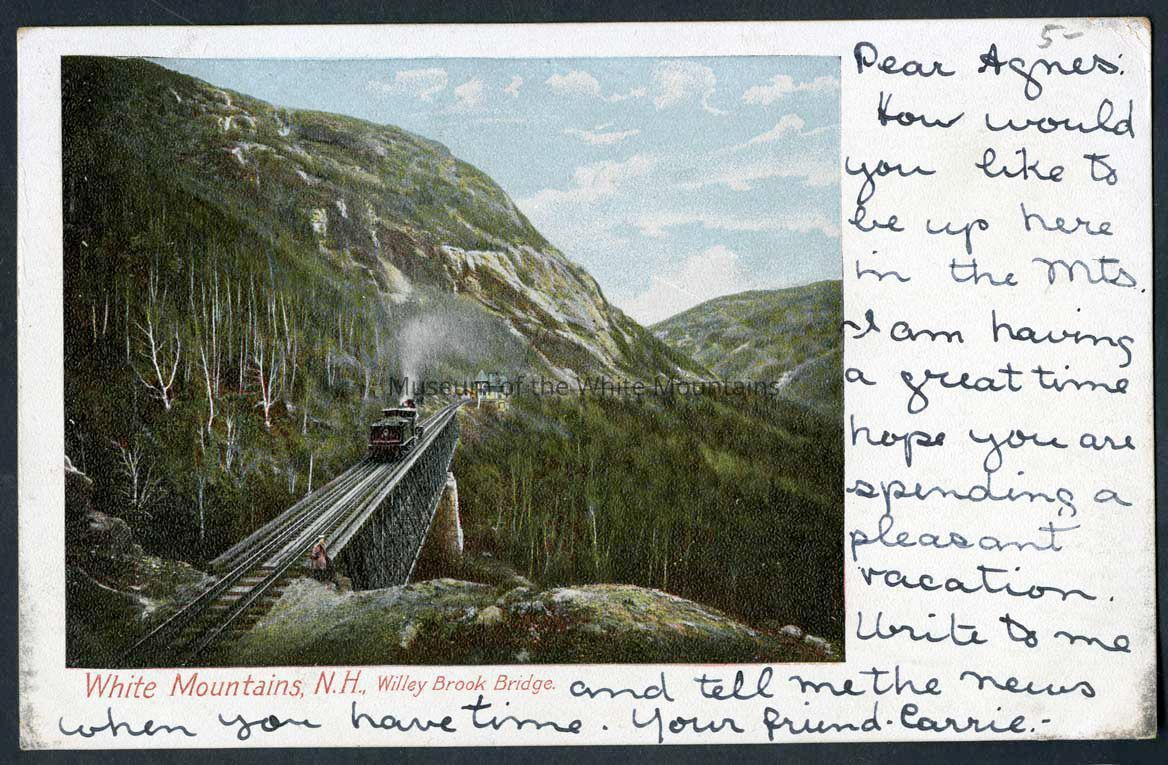 5-
Dear Agnes:
How would
you like to
be up here
in the Mts.
I am having
a great time
hope you are
spending a
pleasant
vacation.
Write to me
and tell me the news
when you have time. Your friend. Carrie.-
Museum of the White Mountains
White Mountains, N.H., Willey Brook Bridge.